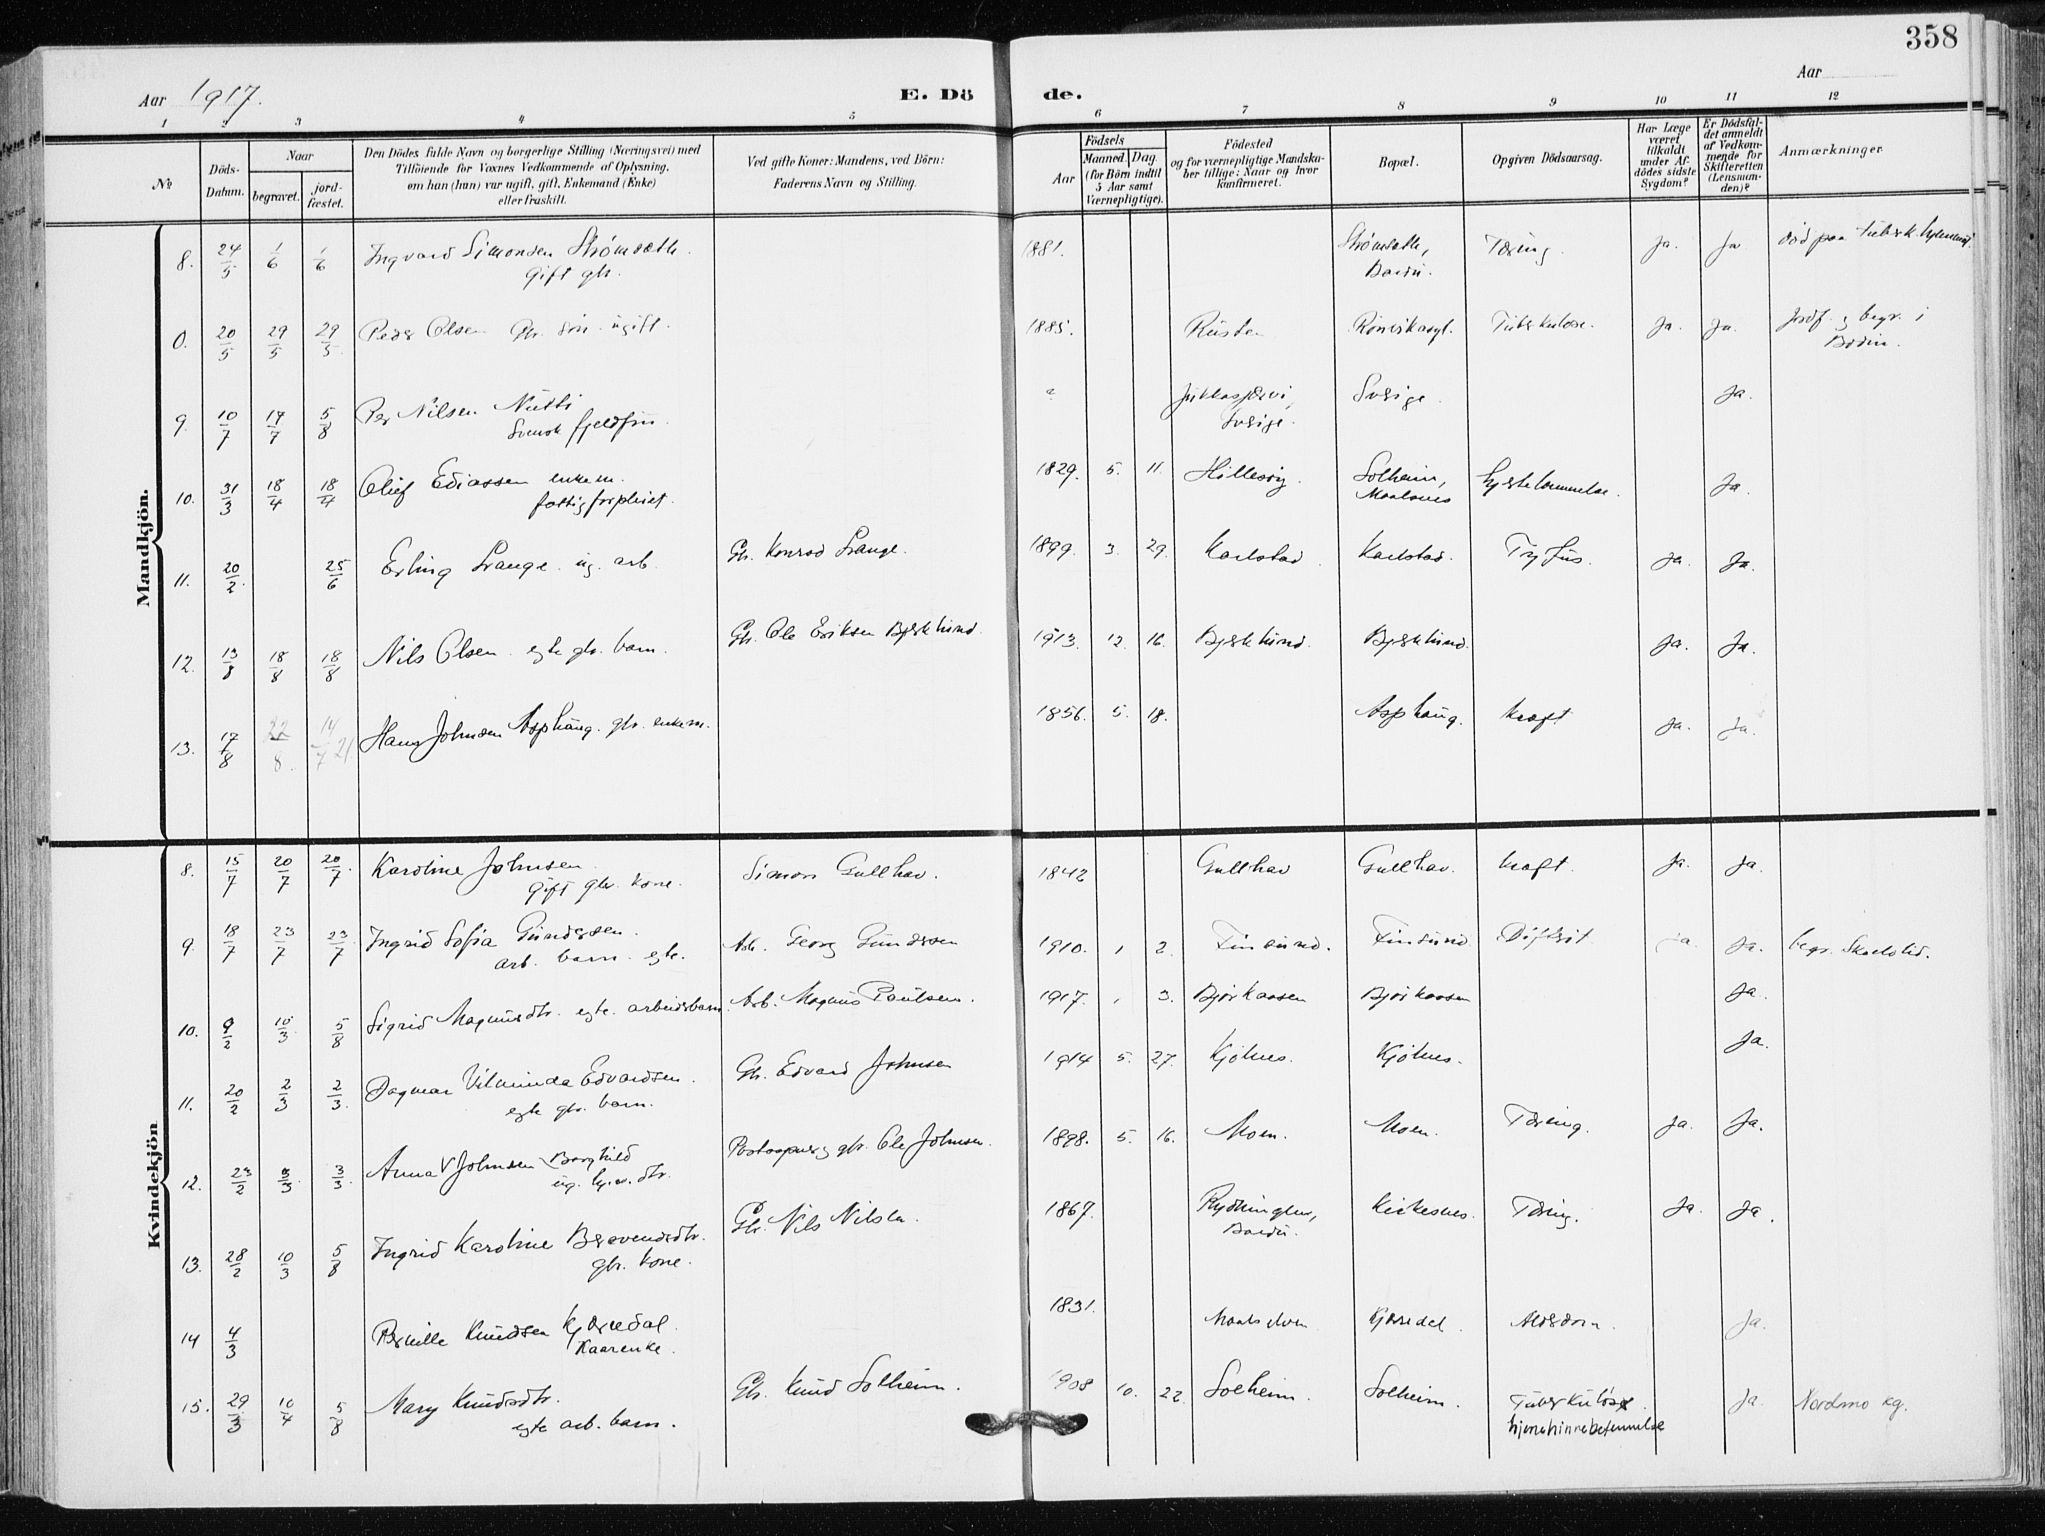 358
Aar 1917.
E. Dö de.
Aar
1 2 3 4 5 6 7 8 9 10 11 12
№
Döds-Datum.
Naar
begravet.
jord-fæstet.
Den Dödes fulde Navn og borgerlige Stilling (Næringsvei) med
Tilföiende for Voxnes Vedkommende af Oplysning,
om han (hun) var ugift, gift, Enkemand (Enke)
eller fraskilt.
Ved gifte Koner: Mandens, ved Börn:
Faderens Navn og Stilling.
Födsels
Aar
Maaned. Dag.
(for Börn indtil
5 Aar samt
Værnepligtige).
Födested
og for værnepligtige Mandska-
ber tillige: Naar og hvor
konfirmeret.
Bopæl.
Opgiven Dödsaarsag.
Har Læge
været
tilkaldt
under Af-
dödes sidste
Sygdom?
Er Dödsfal-
det anmeldt
af Vedkom-
mende for
Skifteretten
(Lensman-
den)?
Anmærkninger
Mandkjön.
8. 24/5 1/6 1/6 Ingvard Simonsen Strømsæth. 1881. Strømsæth, Tæring. Ja. Ja
gift gbr. Bardu.
0. 20/5 29/5 29/5. Peder Olsen Gbr. søn ugift. 1885. Rusten Rønvikasyl. Tuberkulose. Ja. Ja. Jordf. og begr. i
Bodin.
9. 10/7 17/7 5/8 Per Nilsen Nutti Jukkasjærvi, Sverige. Ja.
Svensk fjeldfin. Sverige.
10. 31/3 18/4 18/4 Oluf Ediassen enkem. 1829. 5. 11. Hillesøy Solheim, Ja.
fattigforpleiet. Maalsnes
11. 20/2. 25/6 Erling Lrange. ug. arb. Gb. Konrad Lrange. 1899. 3. 29. Karlstad. Karlstad. Tyfus. Ja. Ja.
12. 13/8 18/8 18/8 Nils Olsen. egte gbr. barn. Gb. Ole Eriksen Bjerklund. 1913. 12. 16. Bjerklund. Bjerklund. Ja. Ja.
13. 17/8 22/8. 14/7 21. Hans Johnsen Asphaug. gbr. enkem. 1856. 5. 18. Asphaug. Kræft Ja. Ja.
Kvindekjön
8. 15/7 20/7 20/7. Karoline Johnsen. Simon Gullhav. 1842 Gullhav Gullhav. Kræft. Ja. Ja.
gift gbr. kone.
9. 18/7 23/7 23/7 Ingrid Sofia Gundersen. Arb. Georg Gundersen 1910. 1 2. Finsund. Finsund. Difterit Ja. Ja. begr. Skadstid.
arb. barn. egte.
10. 9/2 10/3. 5/8 Sigrid Magnusdtr. egte. arbeidsbarn. Arb. Magnus Paulsen. 1917. 1 3. Bjørkaasen Bjørkaasen Ja.
11. 20/2 2/3 2/3. Dagmar Vilminda Edvardsen. Gb. Edvard Johnsen 1914 5. 27. Kjølnes. Kjølnes. Ja.
egte gbr. barn.
12. 23/2 3/3. 3/3. Anna V Johnsen Borghild Ole Johnsen. 1898. 5. 16. Moen. Moen. Tæring. Ja. Ja.
13. 28/2 10/3 5/8 Ingrid Karoline Beravendsdtr. Gb. Nils Nilsen. 1867. Rydningen, Kirkesnes. Tæring. Ja. Ja.
gbr. kone. Bardu.
14 4/3 Pernille Knudsen Kjærredal. 1831. Maalselven Kjærredal. Alderdom. Ja.
Kaarenke.
15. 29/3 10/4 5/8 Mary Knudsdtr. Gb. Knud Solheim. 1908 10. 22. Solheim. Solheim. Tuberkuløse Ja. Nordmo kg.
egte arb. barn. hjernehinnebetennelse